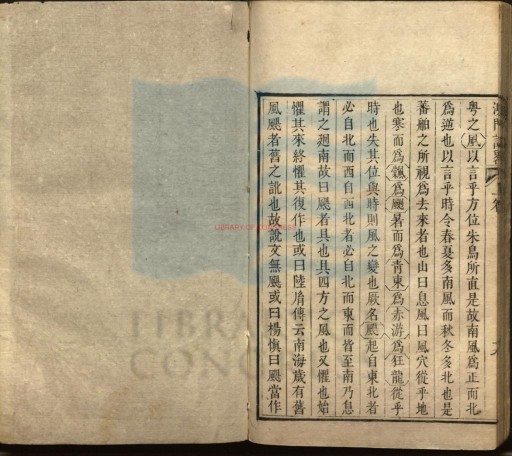 澳門記略 上卷
粵之風以言乎方位朱鳥所直是故南風爲正而北
爲逆也以言乎時令春夏多南風而秋冬多北也是
蕃舶之所視爲去來者也山曰息風曰風穴從乎地
也寒而爲颯爲颲暑而爲青東爲赤游爲狂龍從乎
時也失其位與時則風之變也厥名颶起自東北者
必自北而西自西北者必自北而東而皆至南乃息
謂之廻南故曰颶者具也具四方之風也又懼也始
懼其來終懼其復作也或曰陸𦙍傳云南海歲有舊
風颶者舊之訛也故說文無颶或曰楊愼曰颶當作
LIBRARY OF CONGRESS